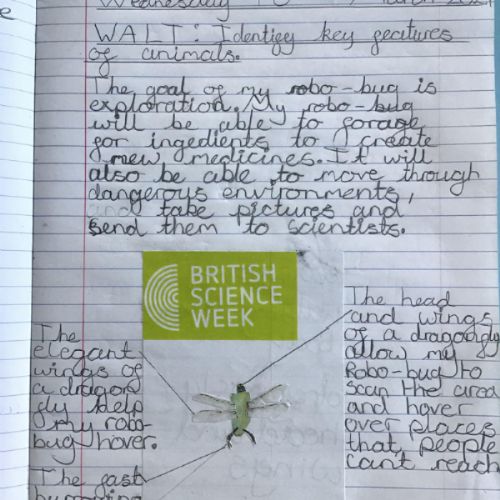 Wednesday
WALT: Identify key features
of animals.
The goal of my robo-bug is
exploration. My robo-bug
will be able to forage
for ingedients to create
new medicines. It will
also be able to move through
dangerous environments,
and take pictures and
send them to scientists.
BRITISH
SCIENCE
WEEK
The
elegant
wings of
a dragon
fly help
my robo-
bug hover.
The head
and wings
of a dragonfly
allow my
Robo-bug to
scan the area
and hover
over places
that people
can't reach
The fast